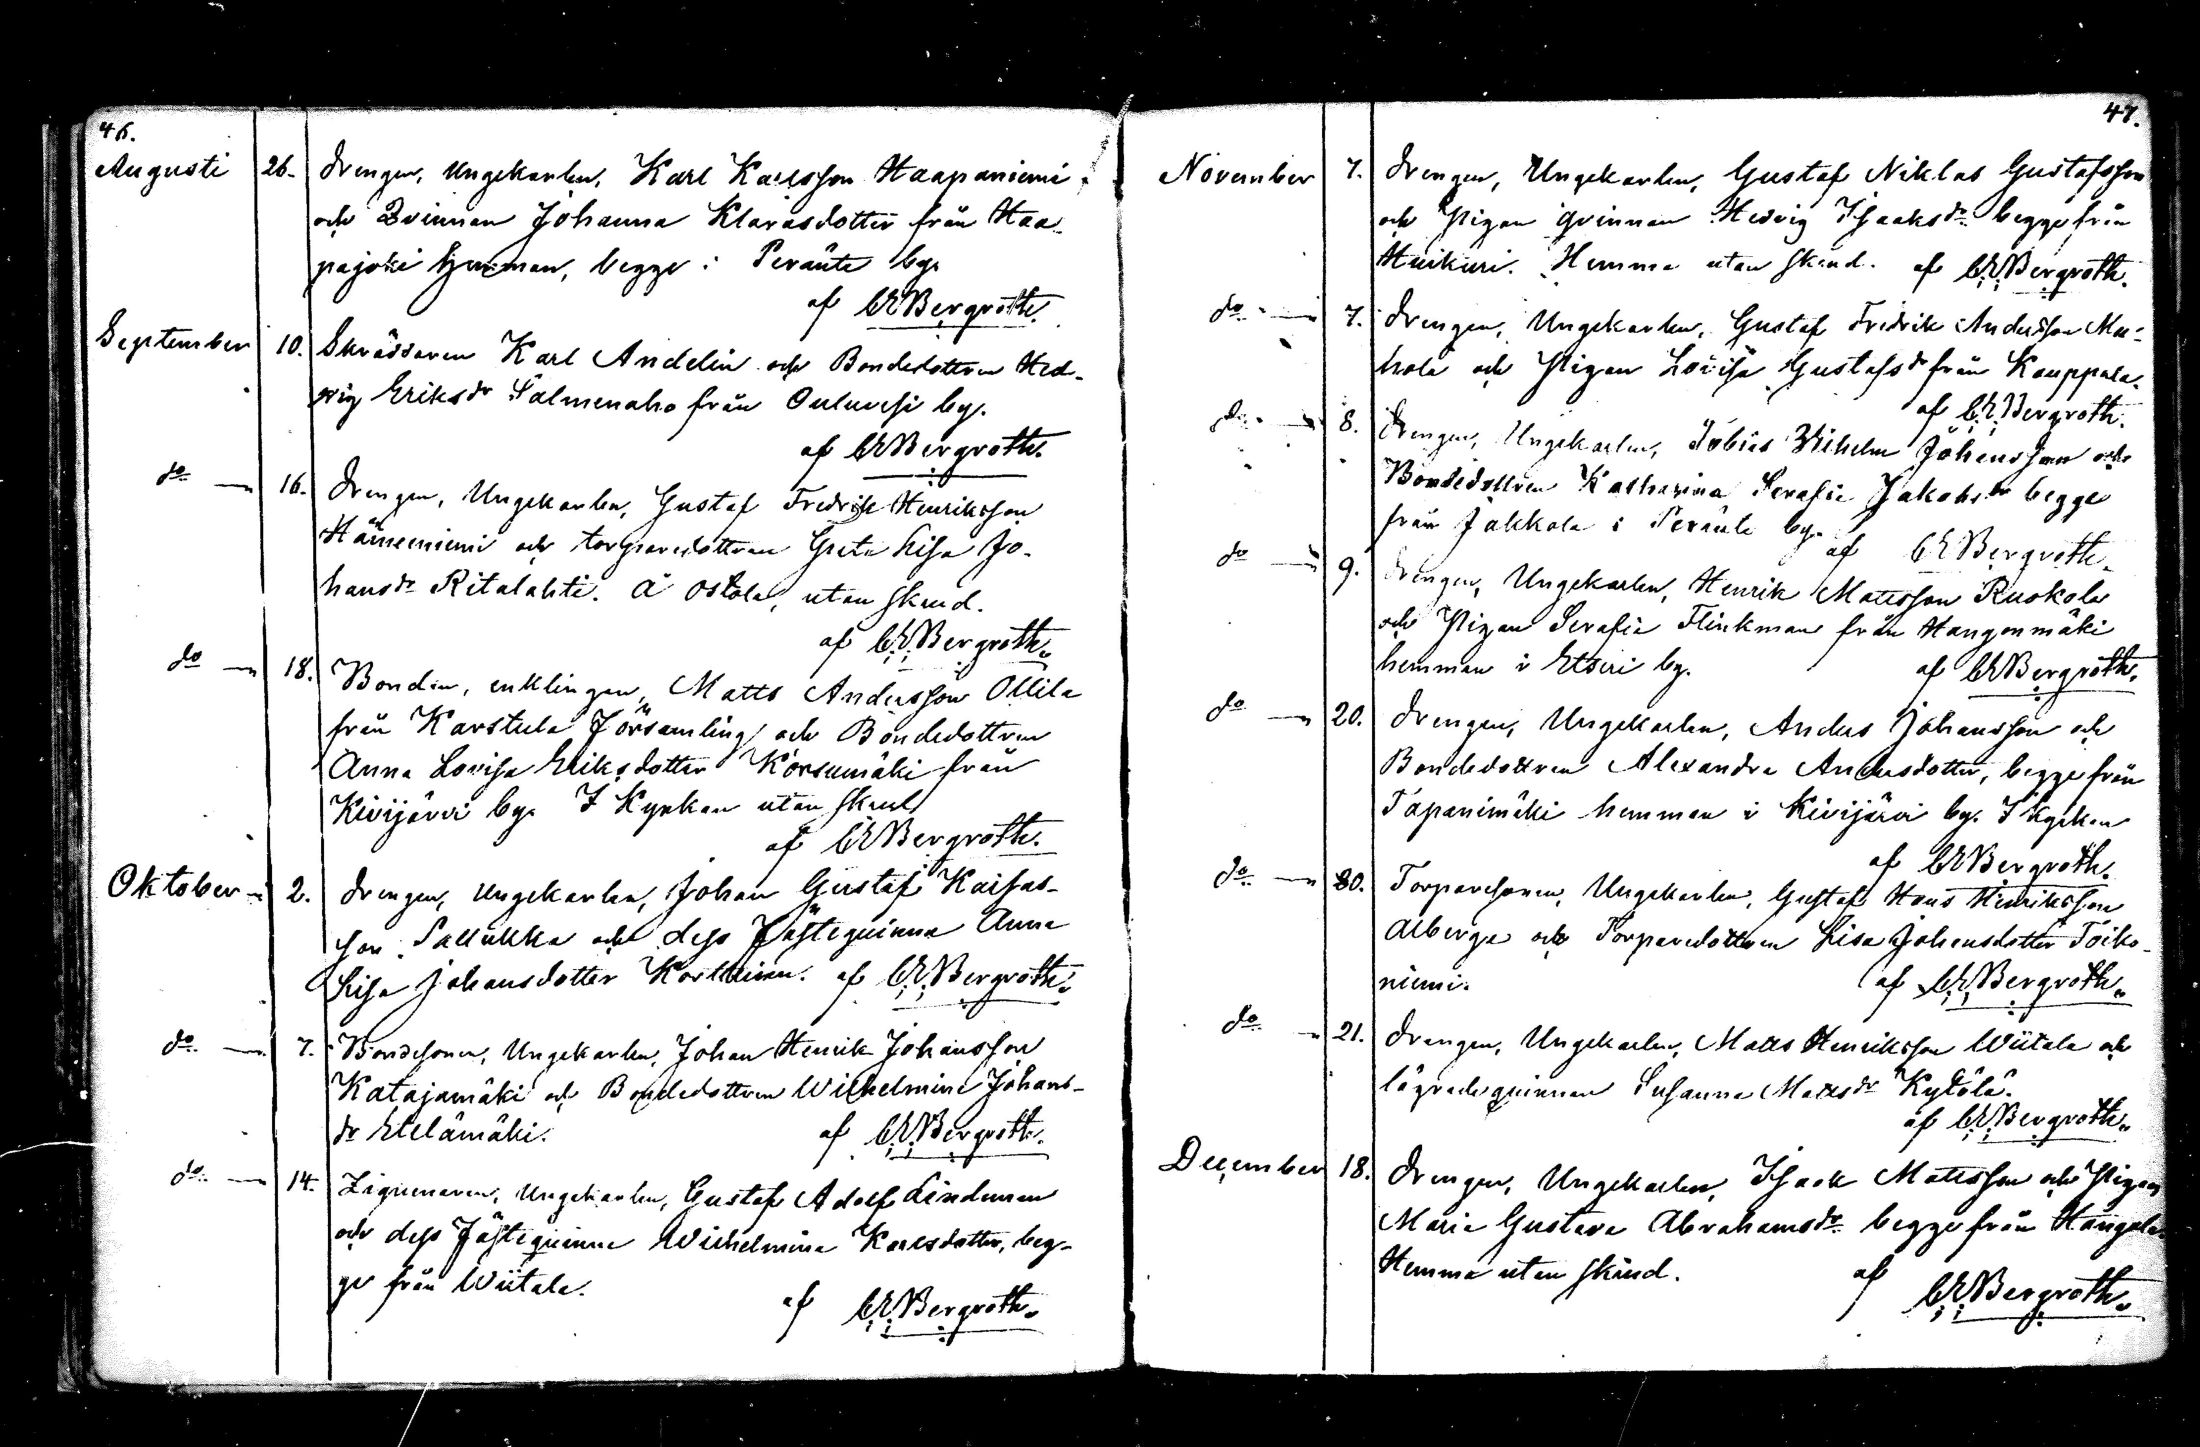 46.
Augusti 26. Drengen, Ungekarlen, Karl Karlsson Haapaniemi
och Qvinnan Johanna Klarasdotter från Haa-
pajoki hemman, begge i Peränte by.
af C.E. Bergroth.
September 10. Skräddaren Karl Andelin och Bondedottren Hed-
vig Eriksdr Salmenaho från Oulunesi by.
af C.E. Bergroth.
do 16. Drengen, Ungekarlen, Gustaf Fredrik Henriksson
Hämeniemi och torparedottren Greta Lisa Jo-
hansdr Ritalahti. Å Ostola, utan skrud.
af C.E. Bergroth.
do 18. Bonden, enklingen, Matts Andersson Ollila
från Karstula Församling och Bondedottren
Anna Lovisa Eriksdotter Korsumäki från
Kivijärvi by. I Kyrkan utan skrud
af C.E. Bergroth.
Oktober 2. Drengen, Ungekarlen, Johan Gustaf Kaisas-
son Sallukka och dess Fästeqvinna Anna
Lisa Johansdotter af C.E. Bergroth.
do 7. Bondesonen, Ungekarlen, Johan Henrik Johansson
Katajamäki och Bondedottren Wilhelmina Johans-
dr Etelämäki. af C.E. Bergroth.
do 14. Ziguenaren, Ungekarlen, Gustaf Adolf Lindeman
och dess Fästeqvinna Wilhelmina Karlsdotter, beg-
ge från Wiitala.
af C.E. Bergroth.
47.
November 7. Drengen, Ungekarlen, Gustaf Niklas Gustafsson
och Pigan qvinnan Hedvig Isaaksdr begge från
Huikuri. Hemma utan skrud. af C.E. Bergroth.
do 7. Drengen, Ungekarlen, Gustaf Fredrik Andersson Me-
hola och Pigan Lovisa Gustafsdr från Kauppala.
af C.E. Bergroth.
do 8. Drengen, Ungekarlen, Tobias Wilhelm Johansson och
Bondedottren Katharina Serafia Jakobsdr begge
från Jakkola i Peränte by.
af C.E. Bergroth.
do 9. Drengen, Ungekarlen, Henrik Mattsson Ruokola
och Pigan Serafia Flinkman från Hangonmäki
hemman i Etseri by. af C.E. Bergroth.
do 20. Drengen, Ungekarlen, Anders Johansson och
Bondedottren Alexandra Andersdotter, begge från
Tapanimäki hemman i Kivijärvi by. I Kyrkan
af C.E. Bergroth.
do 20. Torparesonen, Ungekarlen, Gustaf Hans Henriksson
Alberga och Torparedottren Lisa Johansdotter Toiko-
niemi. af C.E. Bergroth.
do 21. Drengen, Ungekarlen, Matts Henriksson Wiitala och
lägradeqvinnan Susanna Mattsdr Kytölä.
af C.E. Bergroth.
December 18. Drengen, Ungekarlen, Isaak Mattsson och Pigan
Maria Gustava Abrahamsdr begge från Hangola.
Hemma utan skrud. af
C.E. Bergroth.